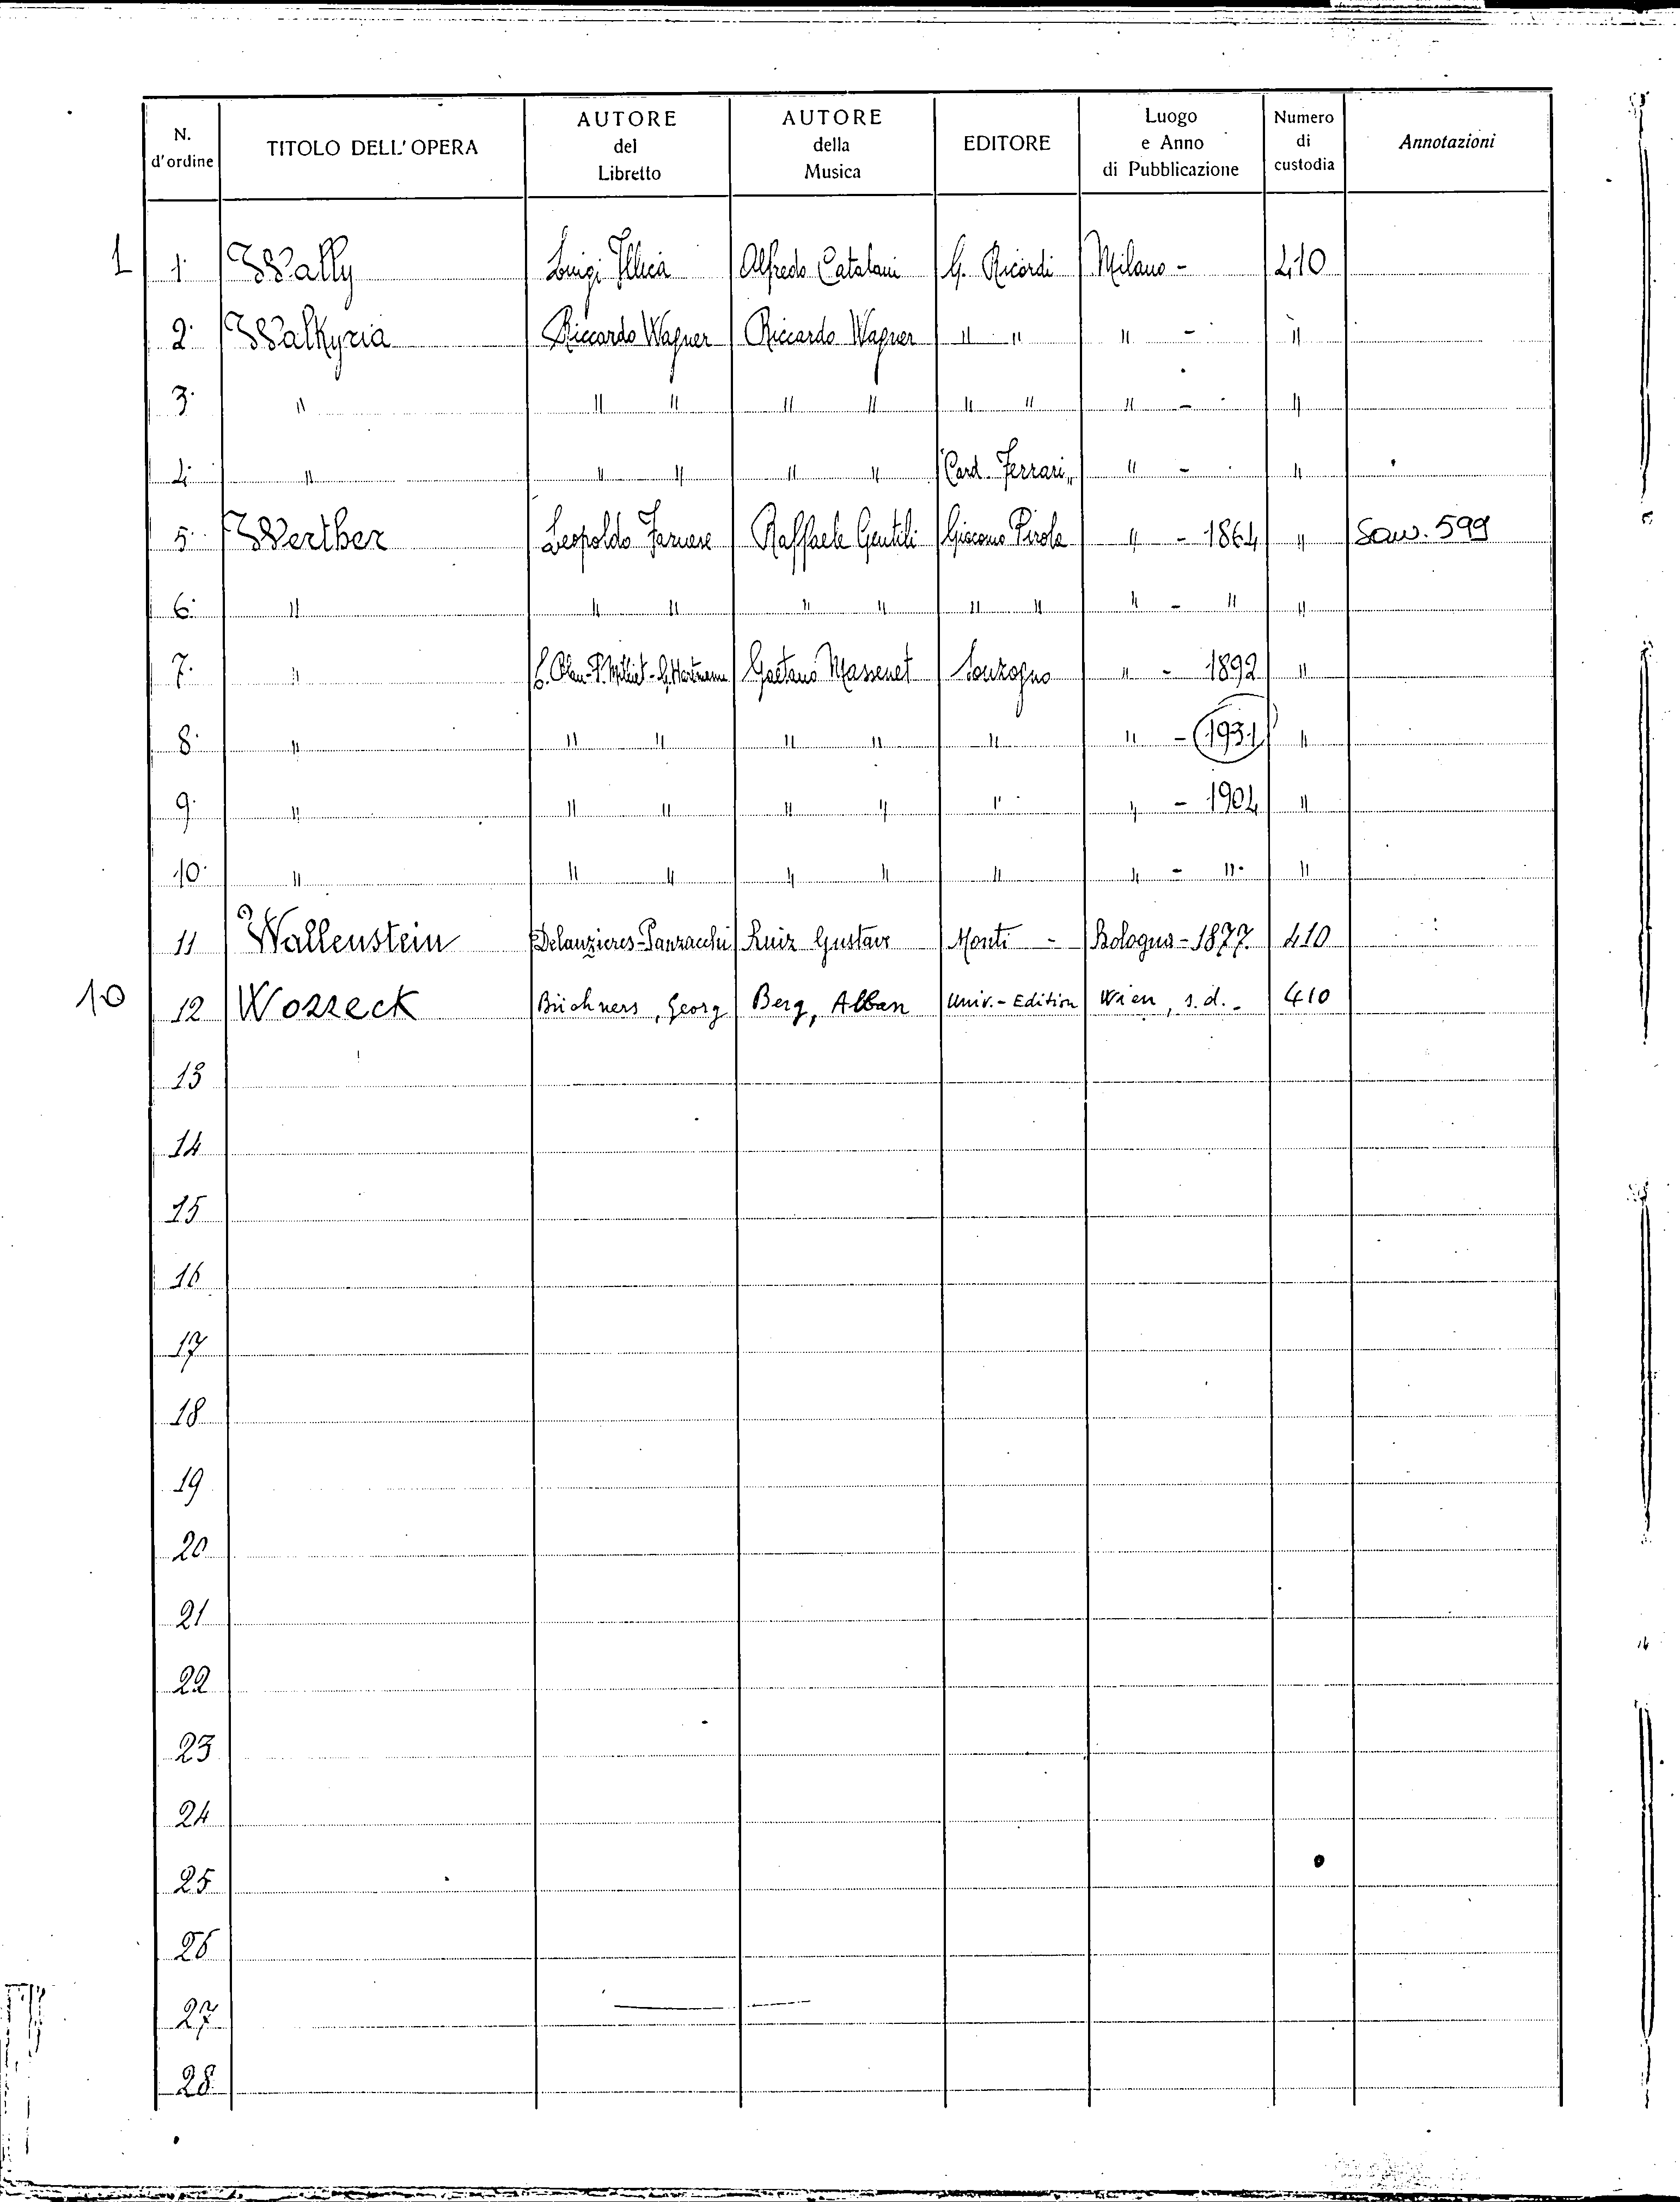 N. d'ordine TITOLO DELL'OPERA AUTORE del Libretto AUTORE della Musica EDITORE Luogo e Anno di Pubblicazione Numero di custodia Annotazioni
1 1. Wally Luigi Illica Alfredo Catalani G. Ricordi Milano - 410
2. Walkyria Riccardo Wagner Riccardo Wagner " " " - "
3. " " " " " " " " - "
4. " " " " " Card. Ferrari " - "
5. Werther Leopoldo Farnese Raffaele Gentili Giacomo Pirola " - 1864 " Saw. 599
6. " " " " " " " " - " "
7. " E. Blau-P. Milliet-G. Hartmann Gaetano Massenet Sonzogno " - 1892 "
8. " " " " " " " - 1931 "
9. " " " " " " " - 1904 "
10. " " " " " " " - " "
11 Wallenstein Delauzieres-Panzacchi Ruiz Gustavo Monti - Bologna - 1877. 410
10 12 Wozzeck Büchners, Georg Berg, Alban Univ.- Edition Wien, s.d. - 410
13
14
15
16
17
18
19
20
21
22
23
24
25
26
27
28